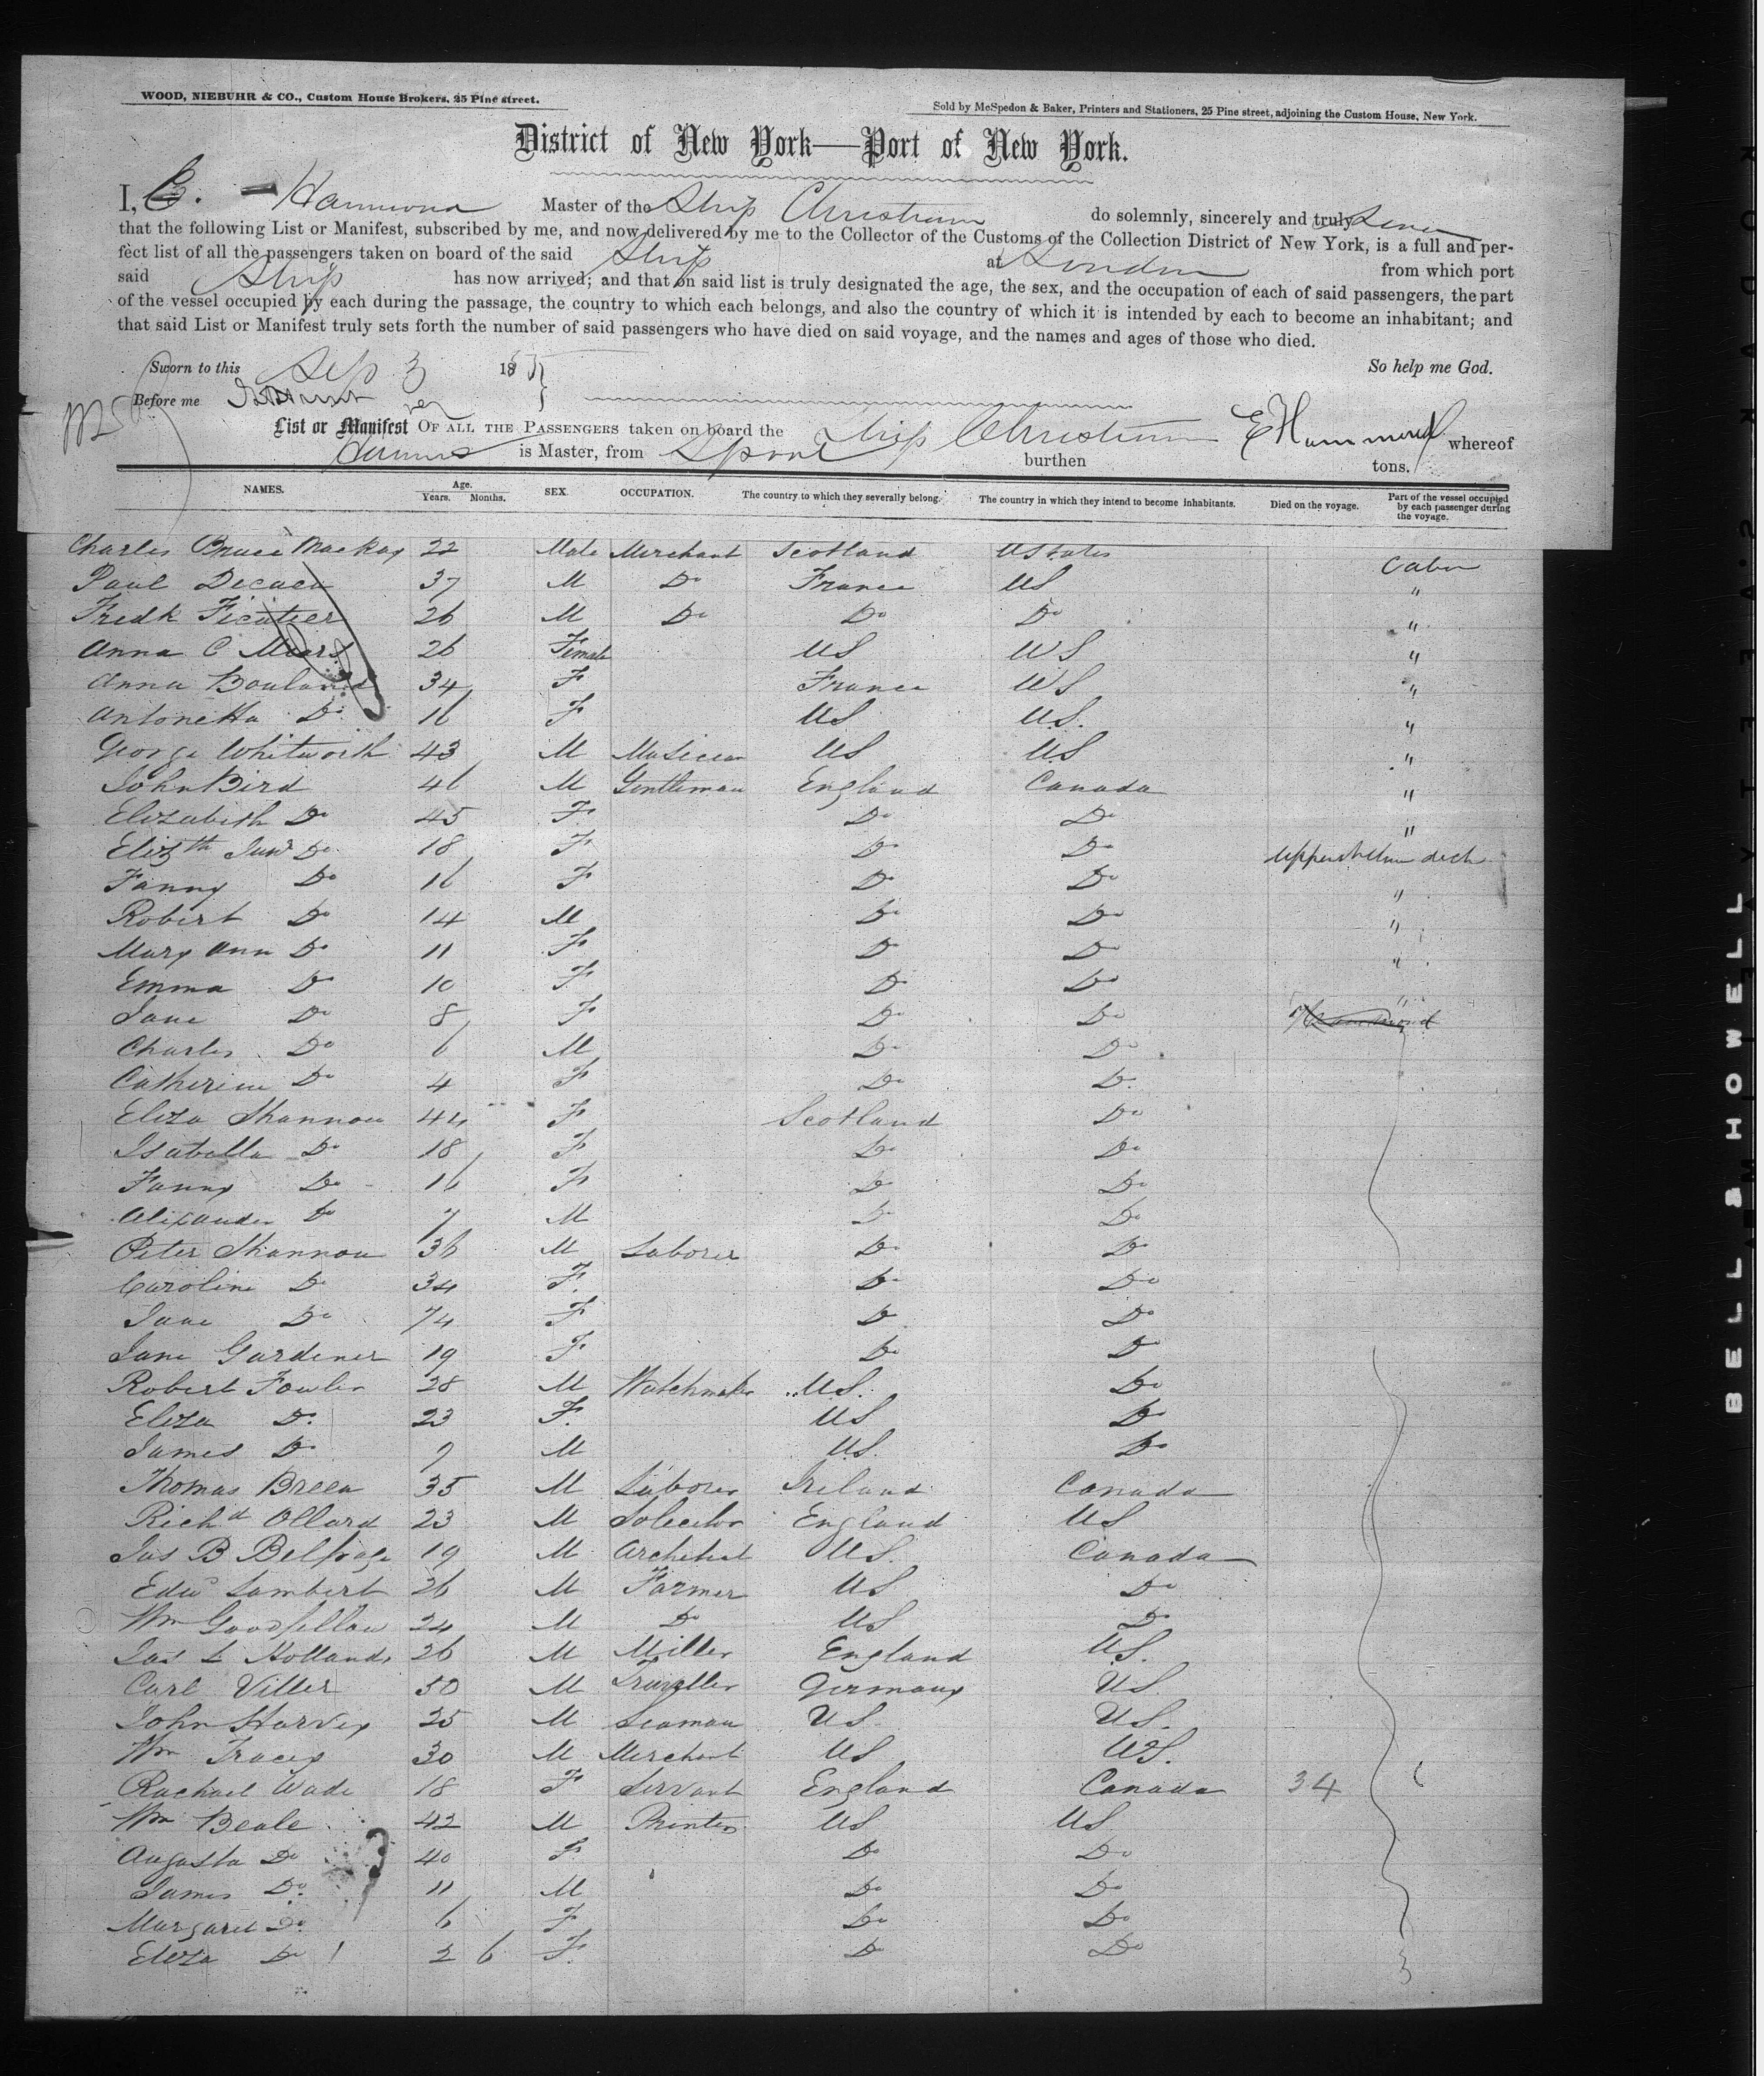 WOOD, NIEBUHR & CO., Custom House Brokers, 25 Pine street.
Sold by McSpedon & Baker, Printers and Stationers, 25 Pine street, adjoining the Custom House, New York.
District of New York—Port of New York.
I, E. Hammond Master of the Ship do solemnly, sincerely and truly
that the following List or Manifest, subscribed by me, and now delivered by me to the Collector of the Customs of the Collection District of New York, is a full and per-
fect list of all the passengers taken on board of the said Ship at London from which port
said Ship has now arrived; and that on said list is truly designated the age, the sex, and the occupation of each of said passengers, the part
of the vessel occupied by each during the passage, the country to which each belongs, and also the country of which it is intended by each to become an inhabitant; and
that said List or Manifest truly sets forth the number of said passengers who have died on said voyage, and the names and ages of those who died.
Sworn to this Sep 3 185 So help me God.
Before me
List or Manifest OF ALL THE PASSENGERS taken on board the Ship E Hammond whereof
is Master, from burthen tons.
NAMES. Age. Years. Months. SEX. OCCUPATION. The country to which they severally belong. The country in which they intend to become inhabitants. Died on the voyage. Part of the vessel occupied by each passenger during the voyage.
Charles Bruce Mackay 22 Male Merchant Scotland UStates Cabin
Paul 37 M Do France US "
Fredk 26 M Do Do Do "
Anna C Mears 26 Female US US "
Anna 34 F France US "
Antonetta Do 16 F US US. "
George Whitworth 43 M Musician US US "
John Bird 46 M Gentleman England Canada "
Elizabeth Do 45 F Do Do "
Elizth Junr Do 18 F Do Do deck
Fanny Do 16 F Do Do "
Robert Do 14 M Do Do "
Mary Ann Do 11 F Do Do "
Emma Do 10 F Do Do "
Jane Do 8 F Do Do
Charles Do 6 M Do Do
Catherine Do 4 F Do Do
Eliza Shannon 44 F Scotland Do
Isabella Do 18 F Do Do
Fanny Do 16 F Do Do
Alexander Do 7 M Do Do
Peter Shannon 36 M Laborer Do Do
Caroline Do 34 F. Do Do
Jane Do 74 F Do Do
Jane Gardener 19 F Do Do
Robert Fowler 28 M Watchmaker U.S. Do
Eliza Do 23 F. US Do
James Do 9 M US. Do
Thomas Breen 35 M Laborer Ireland Canada
Richd Ollard 23 M Solecitor England US
Jas B Belfrage 19 M Architect US. Canada
Edwd Lambert 26 M Farmer US Do
Wm Goodfellow 24 M Do US Do
Jas L Hollands 26 M Miller England US.
Carl Viller 50 M Traveller Germany US.
John Harvey 25 M Seaman US US.
Wm Tracey 30 M Merchant US US.
Rachael Wade 18 F Servant England Canada 34
Wm Beale 42 M Printer US US
Augusta Do 40 F Do Do
James Do 11 M Do Do
Margaret Do 6 F Do Do
Eliza Do 2 6 F. Do Do
BELL & HOWELL